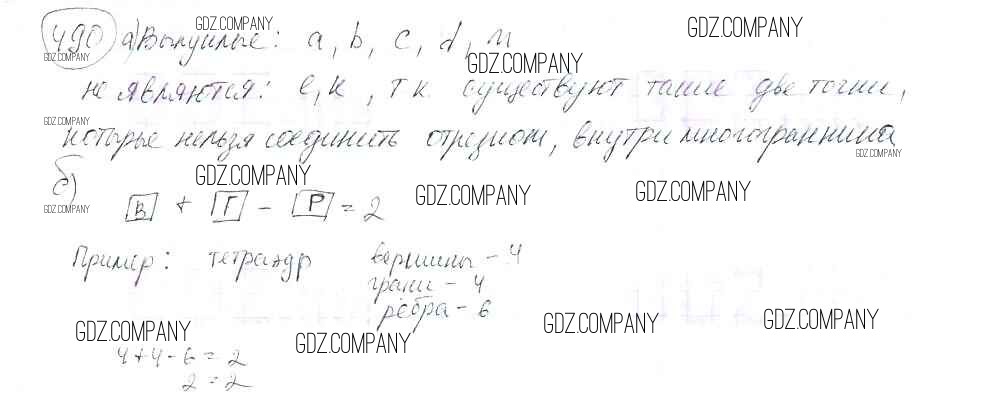 GDZ.COMPANY GDZ.COMPANY
490 а) Выпуклые: a, b, c, d, м
GDZ.COMPANY GDZ.COMPANY
не являются: е, к, т к существуют такие две точки,
GDZ.COMPANY
которые нельзя соединить отрезком, внутри многогранника
GDZ.COMPANY
б) GDZ.COMPANY GDZ.COMPANY GDZ.COMPANY
GDZ.COMPANY
В + Г - Р = 2
Пример: тетраэдр вершины - 4
грани - 4
рёбра - 6
GDZ.COMPANY GDZ.COMPANY GDZ.COMPANY GDZ.COMPANY
4+4-6=2
2=2